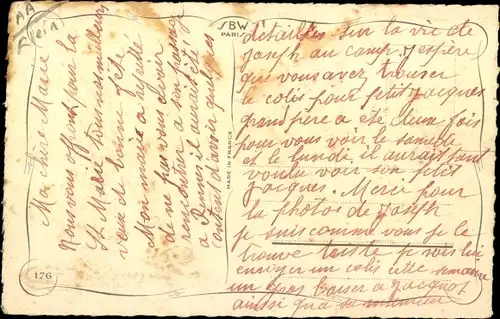 Ma chère Marie
Nous vous offrons pour la
St Marie tous nos meilleurs
vœux de bonne fête
Mon mimie a
de ne pas vous avoir
rencontrer a son passage
a Rennes il aurait été
content d'avoir quelques
détailles sur la vie de
Joseph au camp. J'espère
que vous avez trouver
le colis pour petit Jacques
grand père a été deux fois
pour vous voir le samedi
et le lundi, il aurait tant
voulu voir son petit
Jacques. Merci pour
la photos de Joseph
je suis comme vous je le
trouve triste je vais lui
envoyer un colis cette semaine
un gros baiser a Jacquot
ainsi qu'a
SBW
PARIS
MADE IN FRANCE
176